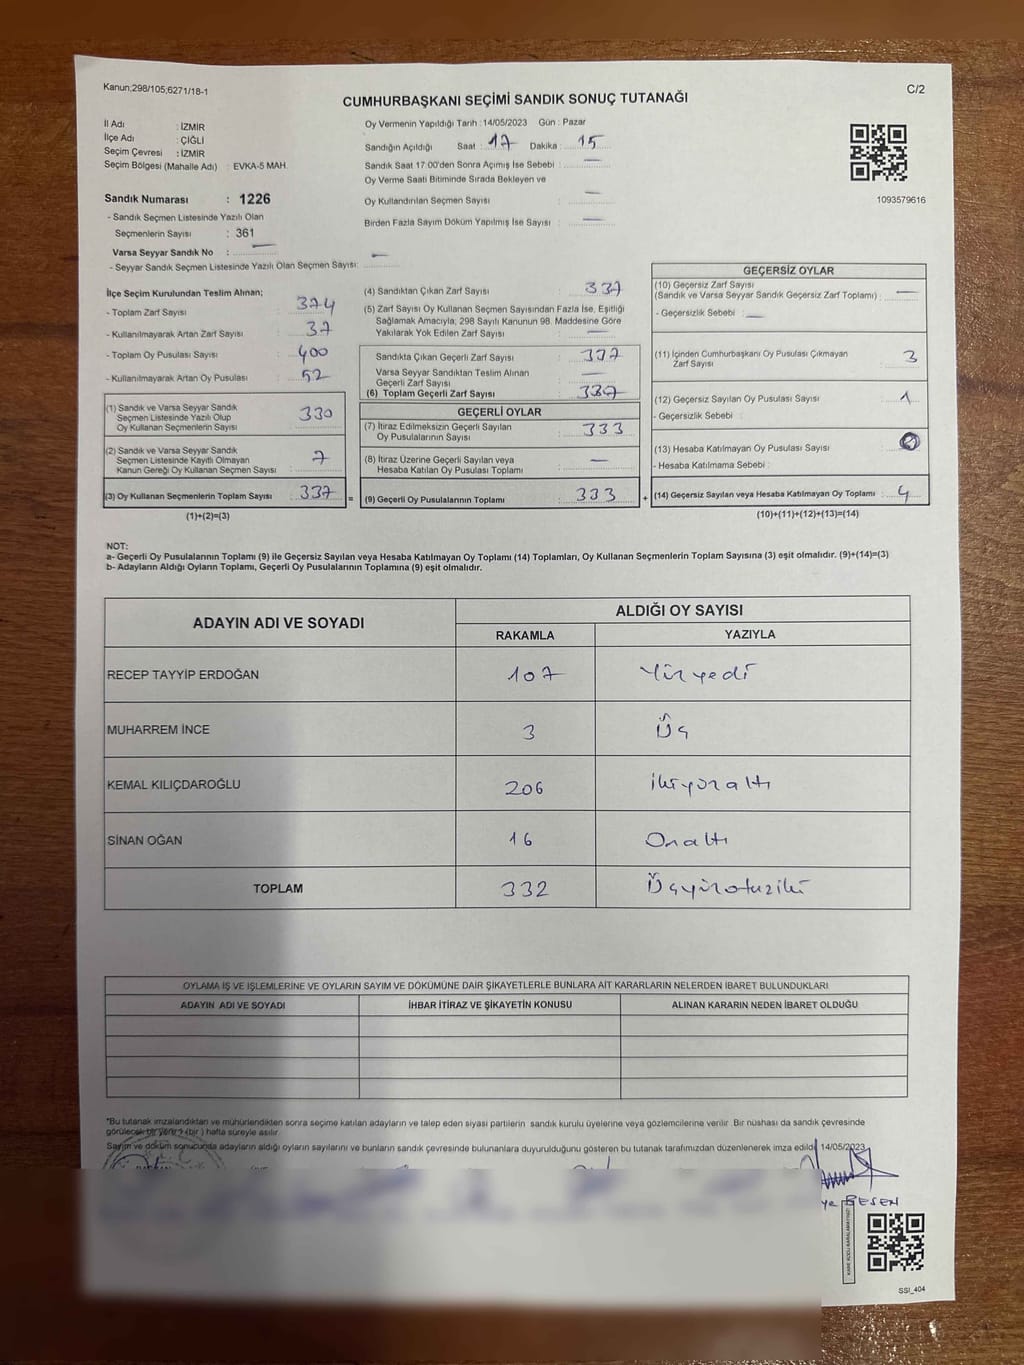 Kanun;298/105;6271/18-1
C/2
CUMHURBAŞKANI SEÇİMİ SANDIK SONUÇ TUTANAĞI
İl Adı : İZMİR
İlçe Adı : ÇİĞLİ
Seçim Çevresi : İZMİR
Seçim Bölgesi (Mahalle Adı) : EVKA-5 MAH.
Sandık Numarası : 1226
- Sandık Seçmen Listesinde Yazılı Olan
Seçmenlerin Sayısı : 361
Varsa Seyyar Sandık No : —
- Seyyar Sandık Seçmen Listesinde Yazılı Olan Seçmen Sayısı: —
Oy Vermenin Yapıldığı Tarih : 14/05/2023 Gün : Pazar
Sandığın Açıldığı Saat : 17 Dakika : 15
Sandık Saat 17:00'den Sonra Açımış İse Sebebi : —
Oy Verme Saati Bitiminde Sırada Bekleyen ve
Oy Kullandırılan Seçmen Sayısı : —
Birden Fazla Sayım Döküm Yapılmış İse Sayısı : —
1093579616
İlçe Seçim Kurulundan Teslim Alınan;
- Toplam Zarf Sayısı : 374
- Kullanılmayarak Artan Zarf Sayısı : 37
- Toplam Oy Pusulası Sayısı : 400
- Kullanılmayarak Artan Oy Pusulası : 52
(1) Sandık ve Varsa Seyyar Sandık
Seçmen Listesinde Yazılı Olup
Oy Kullanan Seçmenlerin Sayısı : 330
(2) Sandık ve Varsa Seyyar Sandık
Seçmen Listesinde Kayıtlı Olmayan
Kanun Gereği Oy Kullanan Seçmen Sayısı : 7
(3) Oy Kullanan Seçmenlerin Toplam Sayısı : 337 =
(1)+(2)=(3)
(4) Sandıktan Çıkan Zarf Sayısı : 337
(5) Zarf Sayısı Oy Kullanan Seçmen Sayısından Fazla İse, Eşitliği
Sağlamak Amacıyla; 298 Sayılı Kanunun 98. Maddesine Göre
Yakılarak Yok Edilen Zarf Sayısı : —
Sandıkta Çıkan Geçerli Zarf Sayısı : 337
Varsa Seyyar Sandıktan Teslim Alınan
Geçerli Zarf Sayısı : —
(6) Toplam Geçerli Zarf Sayısı : 337
GEÇERLİ OYLAR
(7) İtiraz Edilmeksizin Geçerli Sayılan
Oy Pusulalarının Sayısı : 333
(8) İtiraz Üzerine Geçerli Sayılan veya
Hesaba Katılan Oy Pusulası Toplamı : —
(9) Geçerli Oy Pusulalarının Toplamı : 333 +
GEÇERSİZ OYLAR
(10) Geçersiz Zarf Sayısı
(Sandık ve Varsa Seyyar Sandık Geçersiz Zarf Toplamı) : —
- Geçersizlik Sebebi : —
(11) İçinden Cumhurbaşkanı Oy Pusulası Çıkmayan
Zarf Sayısı : 3
(12) Geçersiz Sayılan Oy Pusulası Sayısı : 1
- Geçersizlik Sebebi :
(13) Hesaba Katılmayan Oy Pusulası Sayısı : 0
- Hesaba Katılmama Sebebi :
(14) Geçersiz Sayılan veya Hesaba Katılmayan Oy Toplamı : 4
(10)+(11)+(12)+(13)=(14)
NOT:
a- Geçerli Oy Pusulalarının Toplamı (9) ile Geçersiz Sayılan veya Hesaba Katılmayan Oy Toplamı (14) Toplamları, Oy Kullanan Seçmenlerin Toplam Sayısına (3) eşit olmalıdır. (9)+(14)=(3)
b- Adayların Aldığı Oyların Toplamı, Geçerli Oy Pusulalarının Toplamına (9) eşit olmalıdır.
ADAYIN ADI VE SOYADI ALDIĞI OY SAYISI
RAKAMLA YAZIYLA
RECEP TAYYİP ERDOĞAN 107 Yüzyedi
MUHARREM İNCE 3 Üç
KEMAL KILIÇDAROĞLU 206 ikiyüzaltı
SİNAN OĞAN 16 Onaltı
TOPLAM 332 Üçyüzotuziki
OYLAMA İŞ VE İŞLEMLERİNE VE OYLARIN SAYIM VE DÖKÜMÜNE DAİR ŞİKAYETLERLE BUNLARA AİT KARARLARIN NELERDEN İBARET BULUNDUKLARI
ADAYIN ADI VE SOYADI İHBAR İTİRAZ VE ŞİKAYETİN KONUSU ALINAN KARARIN NEDEN İBARET OLDUĞU
*Bu tutanak imzalandıktan ve mühürlendikten sonra seçime katılan adayların ve talep eden siyasi partilerin sandık kurulu üyelerine veya gözlemcilerine verilir. Bir nüshası da sandık çevresinde
görülecek bir yere 7 (bir ) hafta süreyle asılır.
Sayım ve döküm sonucunda adayların aldığı oyların sayılarını ve bunların sandık çevresinde bulunanlara duyurulduğunu gösteren bu tutanak tarafımızdan düzenlenerek imza edildi. 14/05/2023
BESEN
SSİ_404